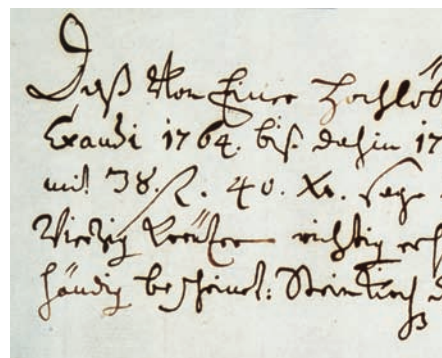 Daß Von Einer Hochlöb
Exaudi 1764. biß dahin 17
mit 38. fl. 40. Xr. sage
Vierzig Kreüzer richtig
händig bescheinet: Steinkirch d